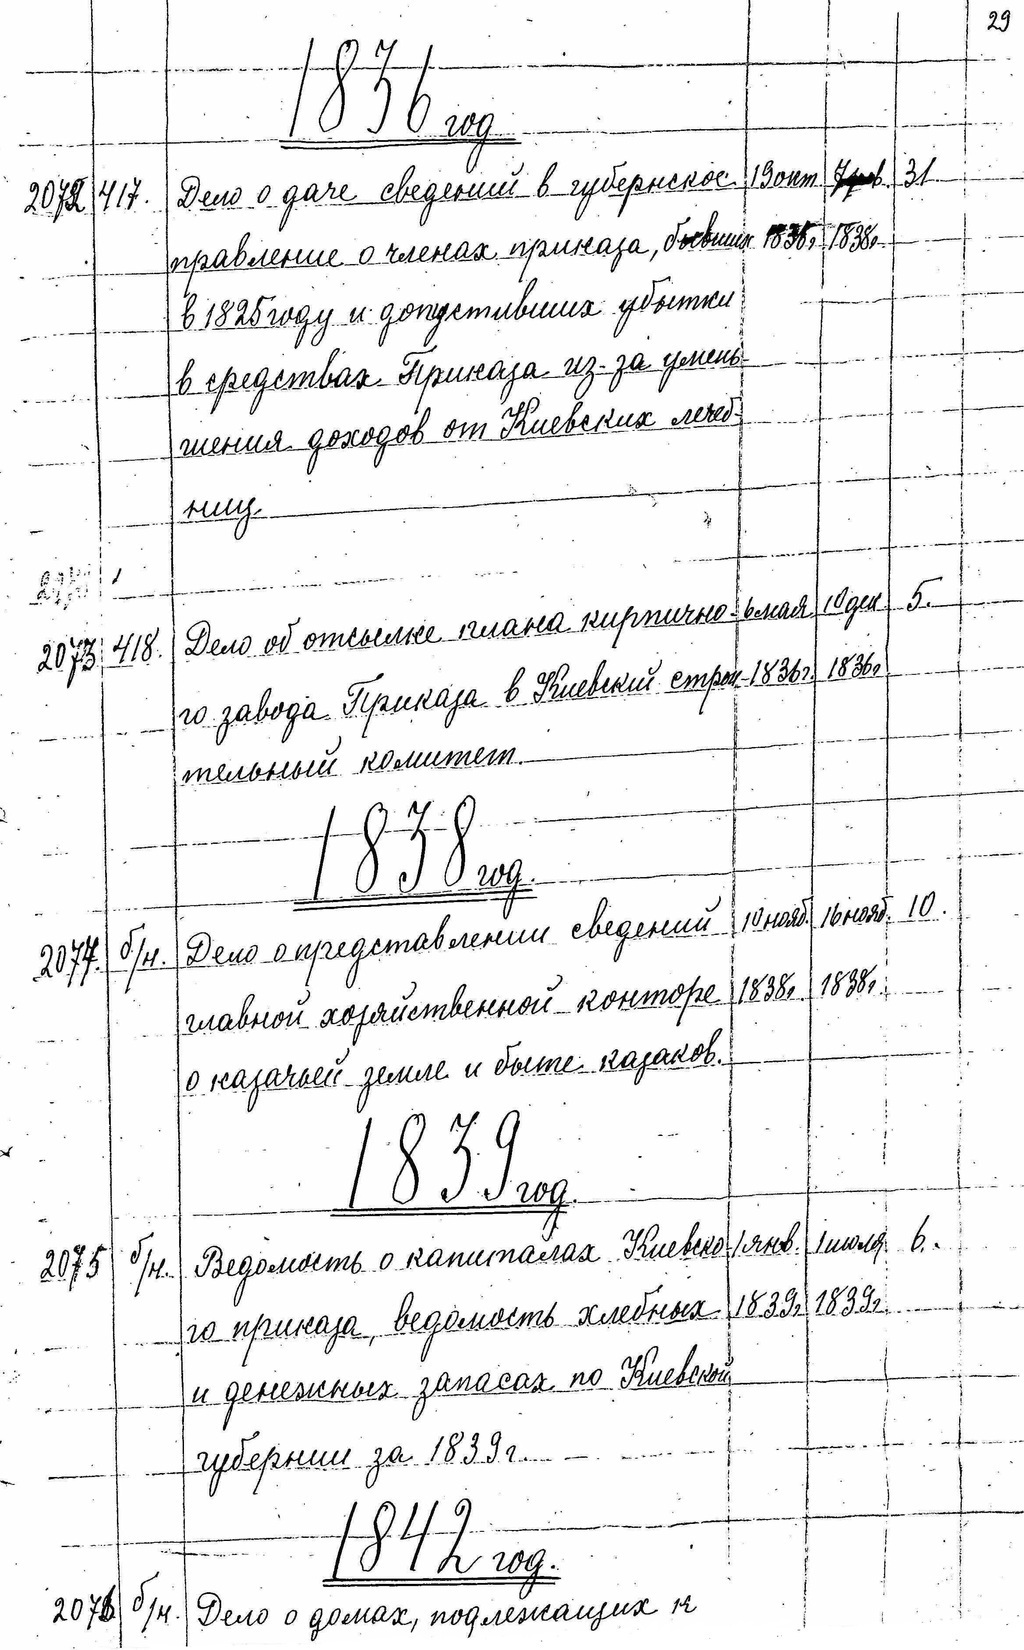 29
1836 год
2072 417. Дело о даче сведений в губернское 19 окт 31
правление о членах приказа, бывших 1835г 1838г
в 1825 году и допустивших убытки
в средствах Приказа из-за умень-
шения доходов от Киевских лечеб-
ниц.
2073 418. Дело об отсылке плана кирпично- 6 мая 10 дек 5.
го завода Приказа в Киевский строи- 1836г. 1836г
тельный комитет.
1838 год.
2074. б/н. Дело о представлении сведений 10 нояб. 16 нояб. 10.
главной хозяйственной конторе 1838г. 1838г.
о казачьей земле и быте казаков.
1839 год.
2075 б/н. Ведомость о капиталах Киевско- 1 янв. 1 июля 6.
го приказа, ведомость хлебных 1839г 1839г
и денежных запасах по Киевской
губернии за 1839г.
1842 год.
2076 б/н. Дело о домах, подлежащих к